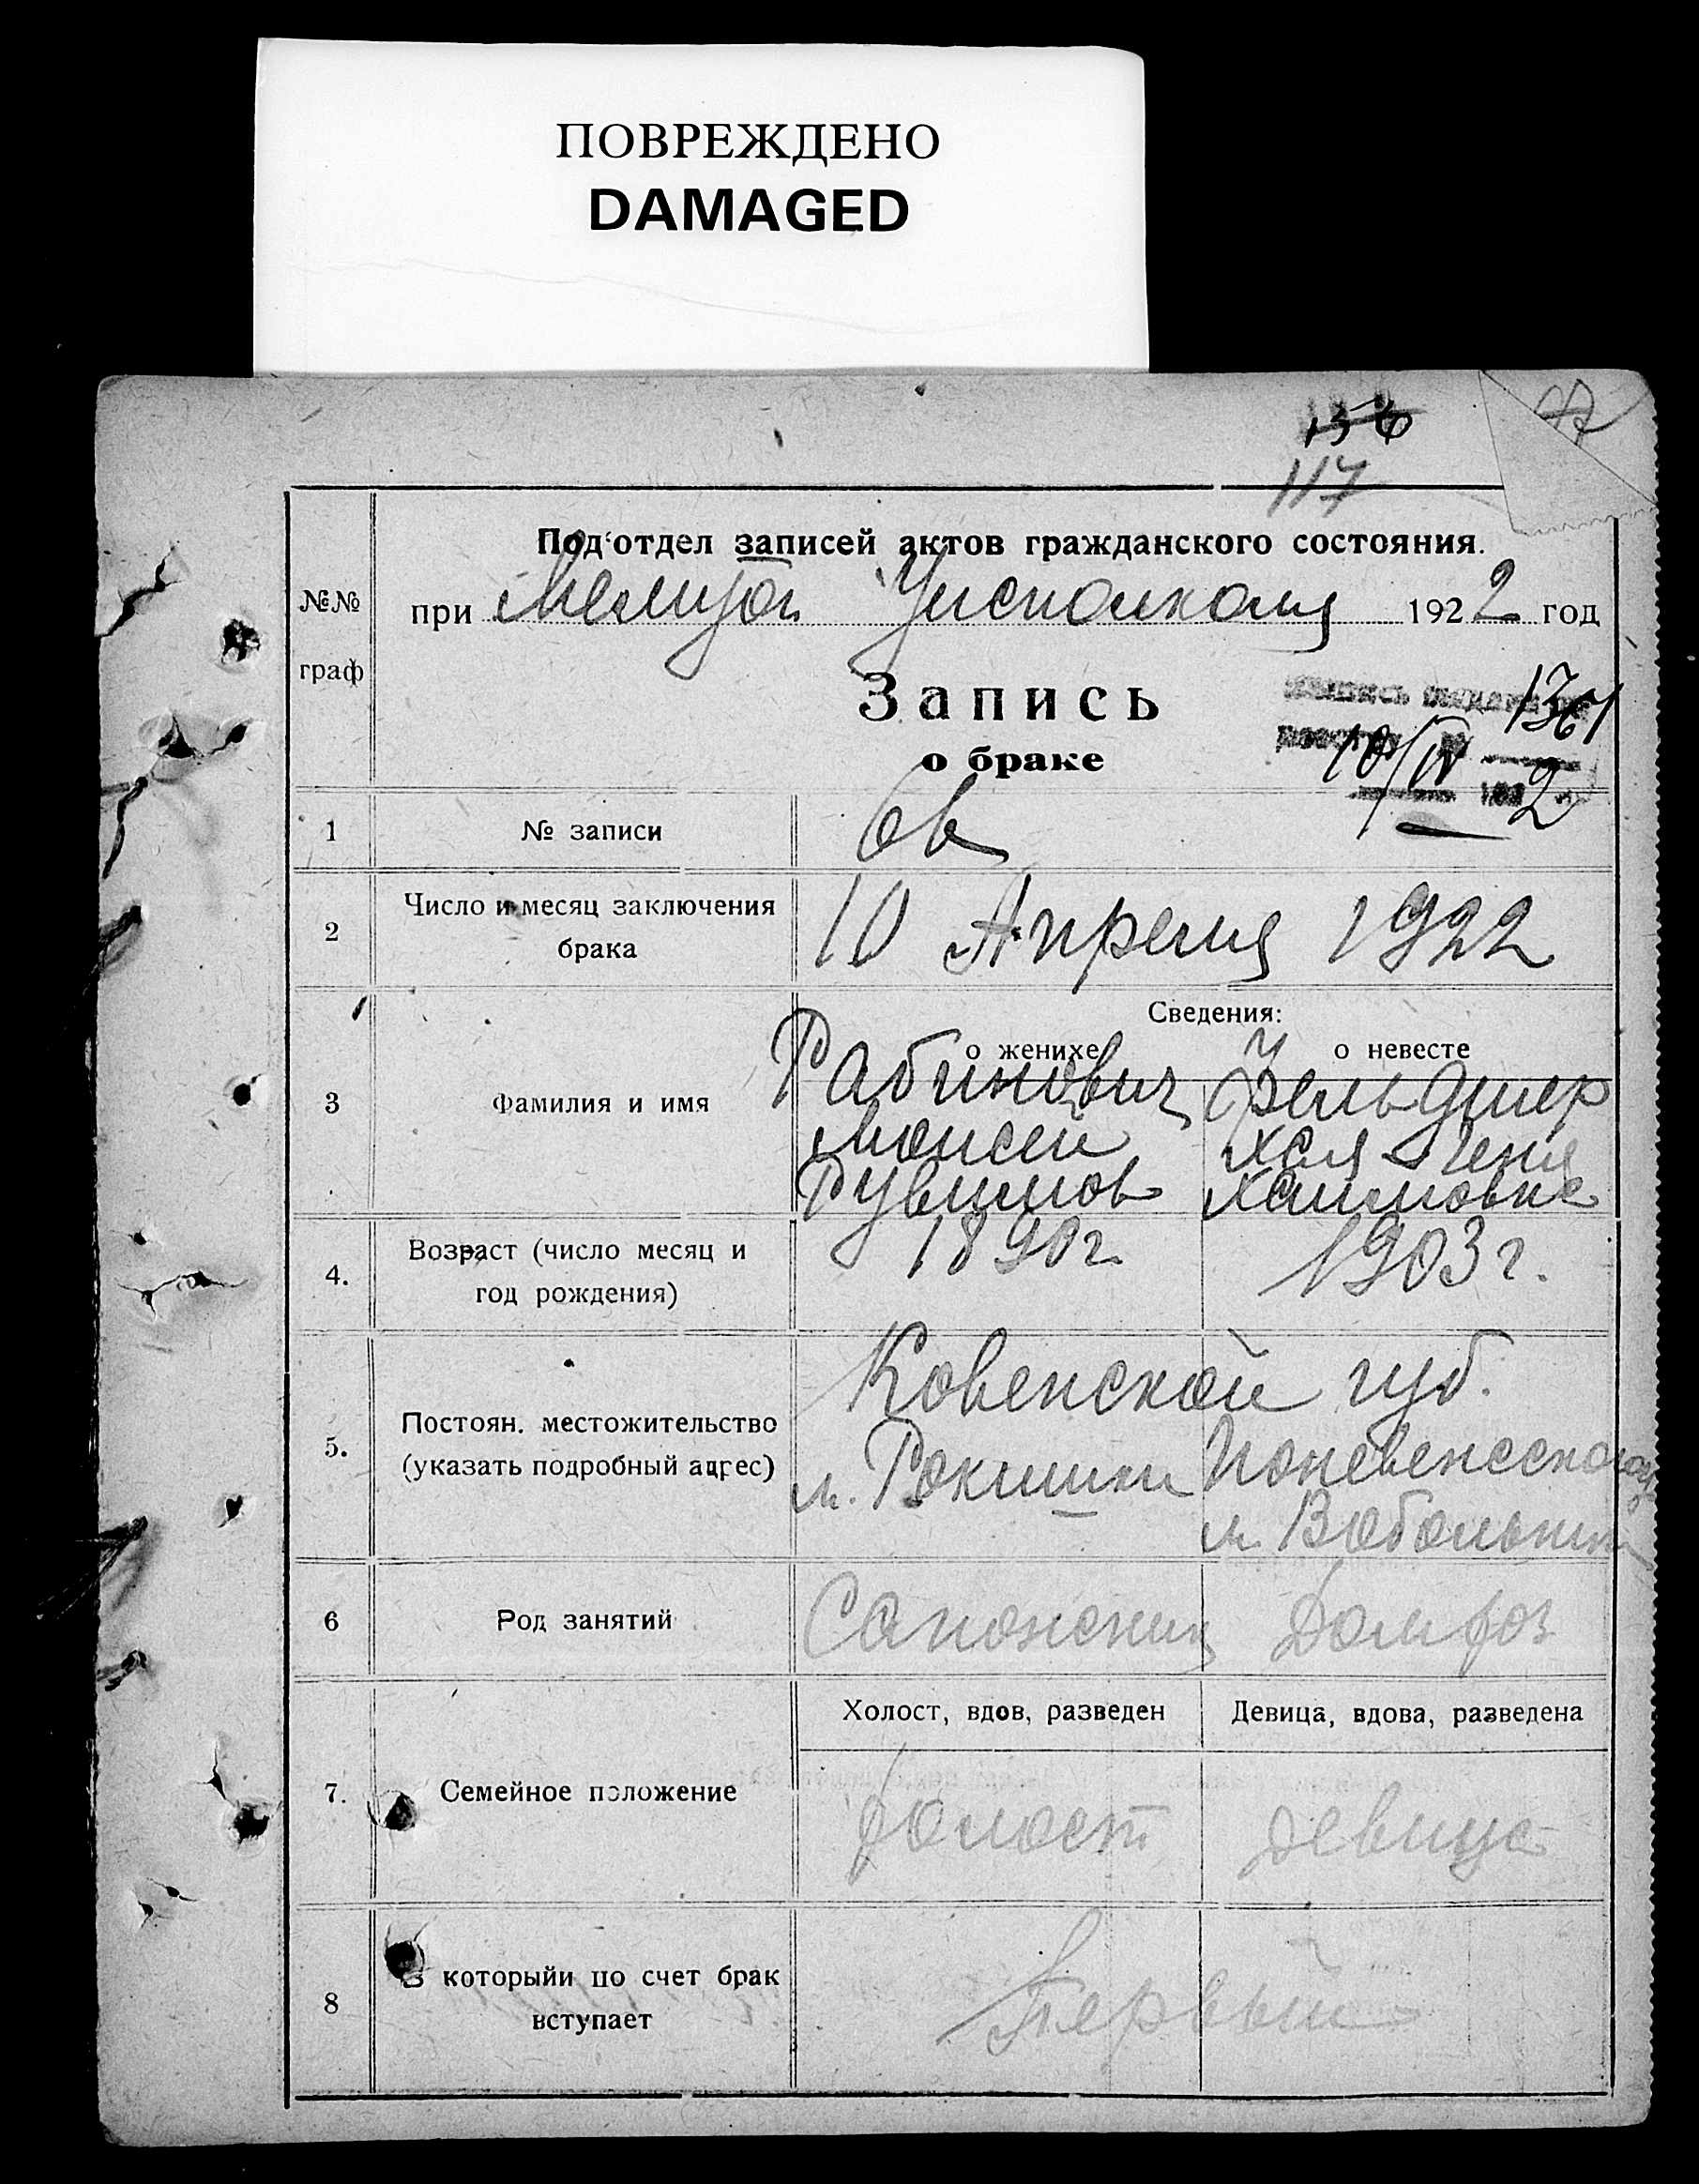 ПОВРЕЖДЕНО
DAMAGED
136
117
Под'отдел записей актов гражданского состояния.
№№
граф
при Мелитоп. Уисполкома 1922 год
Запись
о браке
1361
10/IV 1922
1 № записи
2 Число и месяц заключения
брака
10 Апреля 1922
Сведения:
о женихе о невесте
3 Фамилия и имя
Рабинович Фельдшер
Моисей Хая Геня
Рувимов Хаимовна
4. Возраст (число месяц и
год рождения)
1890 г. 1903 г.
5. Постоян. местожительство
(указать подробный адрес)
Ковенской губ.
м. Рокишки
м. Вобольники
6 Род занятий
Сапожник
Холост, вдов, разведен Девица, вдова, разведена
7. Семейное положение
холост девица
8 В которыйи по счет брак
вступает
Первый